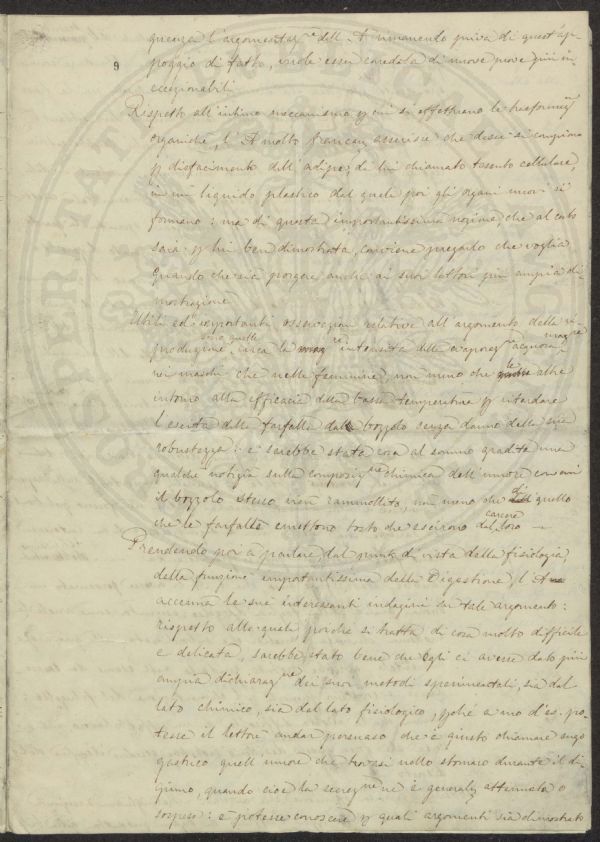 guenza l'argomentaz.ne dell'A rimanendo priva di quest'ap-
poggio di fatto, vuole esser corredata di nuove prove più in-
eccezionabili
9
Rispetto all'intimo meccanismo p cui si effettuano le trasformaz.ni
organiche, l'A molto francam. asserisce che desse si compiono
p disfacimento dell'adipe, da lui chiamato tessuto cellulare,
in un liquido plastico dal quale poi gli organi nuovi si
formano: ma di questa importantissima nozione, che al certo
sarà p lui ben dimostrata, conviene pregarlo che voglia
quando che sia porgere anche ai suoi lettori più ampia di-
mostrazione
Utili ed importanti osservazioni relative all'argomento della ri-
produzione sono quelle circa la maggre intensità della evaporaz.ne acquosa
nei maschi che nelle femmine, non meno che le altre
intorno alla efficacia della bassa temperatura p ritardare
l'escita delle farfalle dal bozzolo senza danno della sua
robustezza: e sarebbe stata cosa al sommo gradita una
qualche notizia sulla composiz.ne chimica dell'umore con cui
il bozzolo stesso vien rammollito, non meno che di quello
che le farfalle emettono tosto che escirono dal loro carcere
Prendendo poi a parlare, dal punto di vista della fisiologia,
della funzione importantissima della Digestione, l'A
accenna le sue interessanti indagini su tale argomento:
rispetto alle quali poichè si tratta di cosa molto difficile
e delicata, sarebbe stato bene che egli ci avesse dato più
ampia dichiaraz.ne dei suoi metodi sperimentali, sia dal
lato chimico, sia dal lato fisiologico, pchè a mo d'es. po-
tesse il lettore andar persuaso che è giusto chiamare sugo
gastrico quell'umore che trovasi nello stomaco durante il di-
giuno, quando cioè la secrezione è generalm. attenuata o
sospesa: e potesse conoscere p quali argomenti sia dimostrato